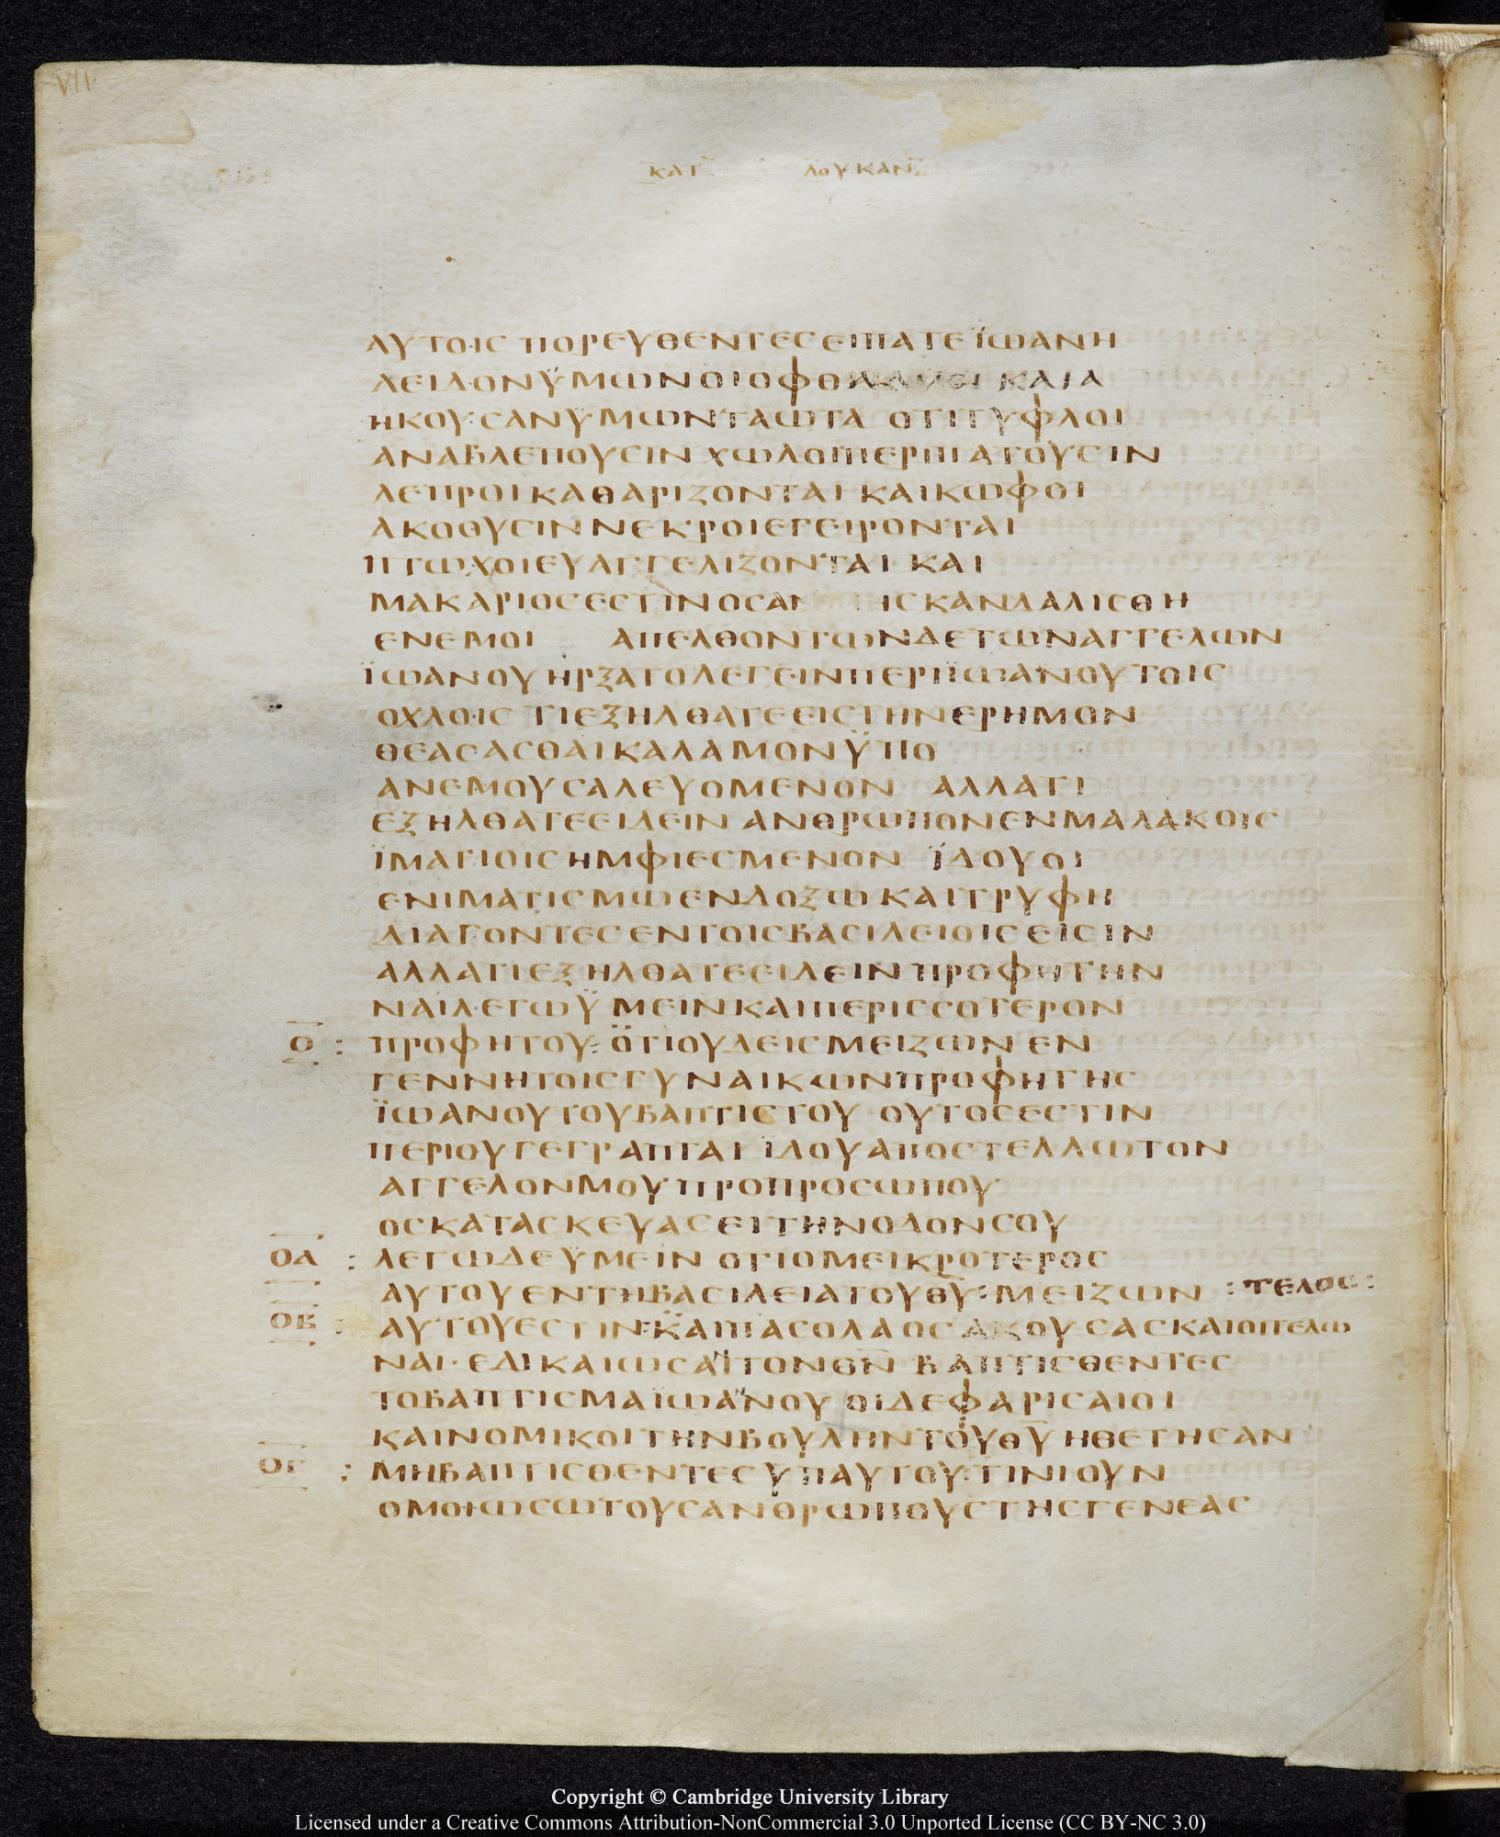 VII
ΚΑΤ ΛΟΥΚΑΝ
ΑΥΤΟΙC ΠΟΡΕΥΘΕΝΤΕC ΕΙΠΑΤΕ ΪΩΑΝΗ
Α ΕΙΔΟΝ ΫΜΩΝ ΟΙ ΟΦΘΑΛΜΟΙ ΚΑΙ Α
ΗΚΟΥCΑΝ ΫΜΩΝ ΤΑ ΩΤΑ ΟΤΙ ΤΥΦΛΟΙ
ΑΝΑΒΛΕΠΟΥCΙΝ ΧΩΛΟΙ ΠΕΡΙΠΑΤΟΥCΙΝ
ΛΕΠΡΟΙ ΚΑΘΑΡΙΖΟΝΤΑΙ ΚΑΙ ΚΩΦΟΙ
ΑΚΟΘΥCΙΝ ΝΕΚΡΟΙ ΕΓΕΙΡΟΝΤΑΙ
ΠΤΩΧΟΙ ΕΥΑΓΓΕΛΙΖΟΝΤΑΙ ΚΑΙ
ΜΑΚΑΡΙΟC ΕCΤΙΝ ΟC ΑΝ CΚΑΝΔΑΛΙCΘΗ
ΕΝ ΕΜΟΙ ΑΠΕΛΘΟΝΤΩΝ ΔΕ ΤΩΝ ΑΓΓΕΛΩΝ
ΪΩΑΝΟΥ ΗΡΞΑΤΟ ΛΕΓΕΙΝ ΠΕΡΙ ΪΩΑΝΟΥ ΤΟΙC
ΟΧΛΟΙC ΤΙ ΕΞΗΛΘΑΤΕ ΕΙC ΤΗΝ ΕΡΗΜΟΝ
ΘΕΑCΑCΘΑΙ ΚΑΛΑΜΟΝ ΫΠΟ
ΑΝΕΜΟΥ CΑΛΕΥΟΜΕΝΟΝ ΑΛΛΑ ΤΙ
ΕΞΗΛΘΑΤΕ ΕΙΔΕΙΝ ΑΝΘΡΩΠΟΝ ΕΝ ΜΑΛΑΚΟΙC
ΪΜΑΤΙΟΙC ΗΜΦΙΕCΜΕΝΟΝ ΪΔΟΥ ΟΙ
ΕΝ ΙΜΑΤΙCΜΩ ΕΝΔΟΞΩ ΚΑΙ ΤΡΥΦΗ
ΔΙΑΓΟΝΤΕC ΕΝ ΤΟΙC ΒΑCΙΛΕΙΟΙC ΕΙCΙΝ
ΑΛΛΑ ΤΙ ΕΞΗΛΘΑΤΕ ΕΙΔΕΙΝ ΠΡΟΦΗΤΗΝ
ΝΑΙ ΛΕΓΩ ΫΜΕΙΝ ΚΑΙ ΠΕΡΙCCΟΤΕΡΟΝ
Ο : ΠΡΟΦΗΤΟΥ: ΟΤΙ ΟΥΔΕΙC ΜΕΙΖΩΝ ΕΝ
ΓΕΝΝΗΤΟΙC ΓΥΝΑΙΚΩΝ ΠΡΟΦΗΤΗC
ΪΩΑΝΟΥ ΤΟΥ ΒΑΠΤΙCΤΟΥ ΟΥΤΟC ΕCΤΙΝ
ΠΕΡΙ ΟΥ ΓΕΓΡΑΠΤΑΙ ΪΔΟΥ ΑΠΟCΤΕΛΛΩ ΤΟΝ
ΑΓΓΕΛΟΝ ΜΟΥ ΠΡΟ ΠΡΟCΩΠΟΥ
ΟC ΚΑΤΑCΚΕΥΑCΕΙ ΤΗΝ ΟΔΟΝ CΟΥ
ΟΑ : ΛΕΓΩ ΔΕ ΫΜΕΙΝ ΟΤΙ Ο ΜΕΙΚΡΟΤΕΡΟC
ΑΥΤΟΥ ΕΝ ΤΗ ΒΑCΙΛΕΙΑ ΤΟΥ ΘΥ: ΜΕΙΖΩΝ :ΤΕΛΟC:
ΟΒ : ΑΥΤΟΥ ΕCΤΙΝ: ΚΑΙ ΠΑC Ο ΛΑΟC ΑΚΟΥCΑC ΚΑΙ ΟΙ ΤΕΛΩ
ΝΑΙ· ΕΔΙΚΑΙΩCΑΝ ΤΟΝ ΘΝ ΒΑΠΤΙCΘΕΝΤΕC
ΤΟ ΒΑΠΤΙCΜΑ ΪΩΑΝΟΥ ΟΙ ΔΕ ΦΑΡΙCΑΙΟΙ
ΚΑΙ ΝΟΜΙΚΟΙ ΤΗΝ ΒΟΥΛΗΝ ΤΟΥ ΘΥ ΗΘΕΤΗCΑΝ
ΟΓ : ΜΗ ΒΑΠΤΙCΘΕΝΤΕC ΥΠ ΑΥΤΟΥ: ΤΙΝΙ ΟΥΝ
ΟΜΟΙΩCΩ ΤΟΥC ΑΝΘΡΩΠΟΥC ΤΗC ΓΕΝΕΑC
Copyright © Cambridge University Library
Licensed under a Creative Commons Attribution-NonCommercial 3.0 Unported License (CC BY-NC 3.0)